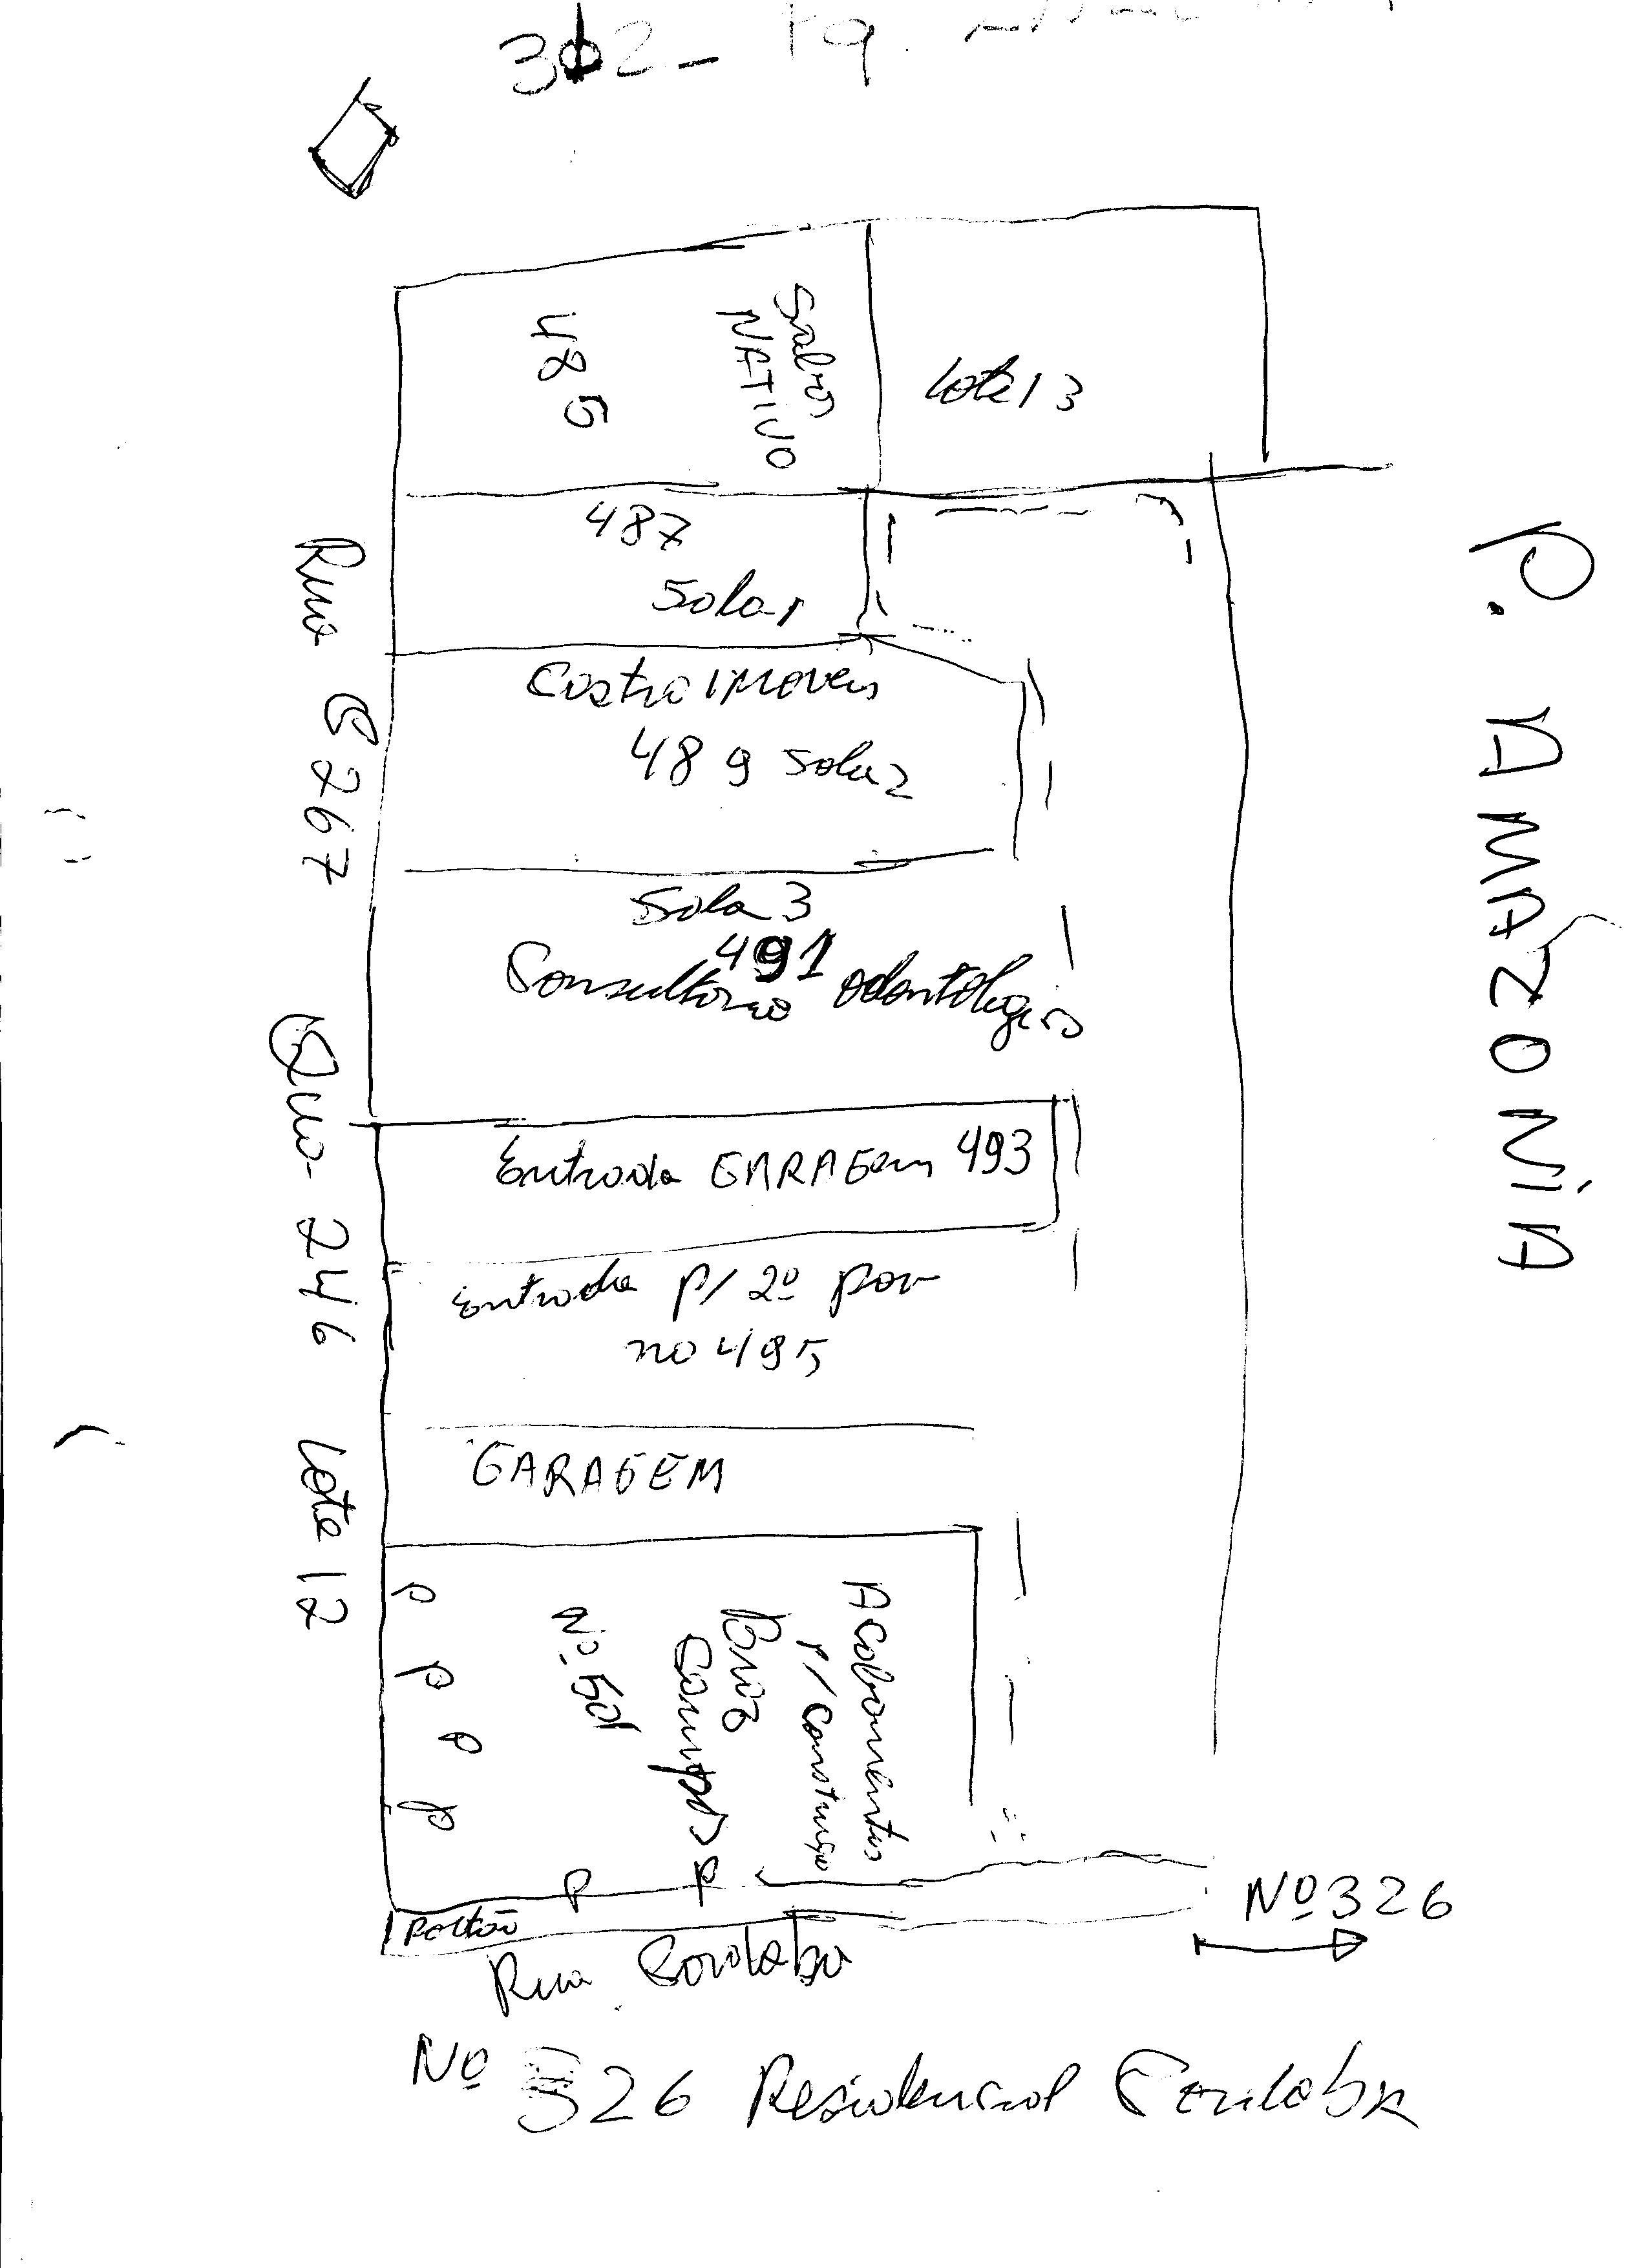 302_
485
Sabor
NATIVO
Lote 13
487
Sala 1
Castro IMoveis
489 Sala 2
Sala 3
491
Consultorio odontologico
Entrada GARAGem 493
Entrada p/ 2º pav
no 495
GARAGEM
Acabamentos
p/ Construção
Braz
Campos
Nº 501
P
P
P
P
P
P
Portão
Rua C 267
Qua- 246 Lote 12
P. AMAZONIA
Nº 326
Rua
Nº 326 Residencial